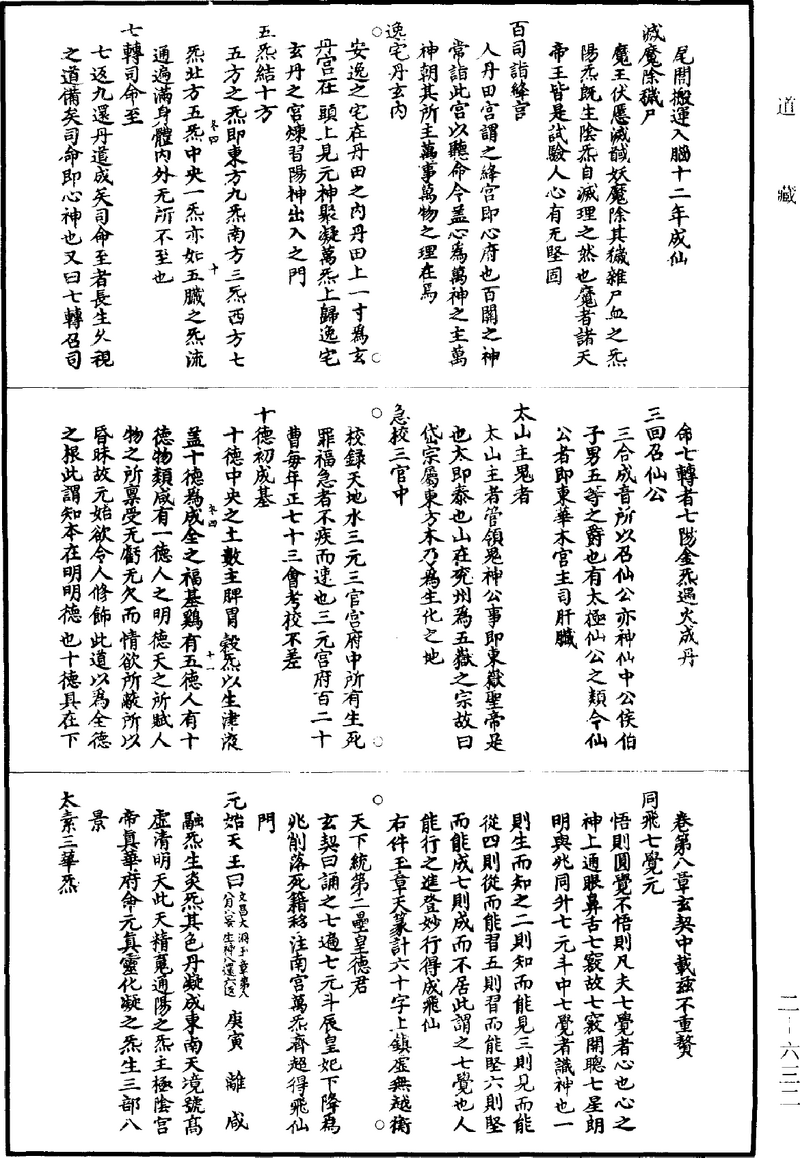 道藏
尾閭搬運入腦十二年成仙
滅魔除穢尸
魔王伏慝滅馘妖魔除其穢雜尸血之炁
陽炁既生陰炁自滅理之然也魔者諸天
帝王皆是試驗人心有无堅固
百司詣絳宫
人丹田宫謂之絳宫即心府也百關之神
常詣此宫以聽命令盖心爲萬神之主萬
神朝其所主萬事萬物之理在焉
逸宅丹玄內
安逸之宅在丹田之內丹田上一寸爲玄
丹宫在頭上見元神聚凝萬炁上歸逸宅
玄丹之宫煉習陽神出入之門
五炁結十方
五方之炁即東方九炁南方三炁西方七
炁北方五炁中央一炁亦如五臟之炁流
通遍滿身體內外无所不至也
七轉司命至
七返九還丹道成矣司命至者長生久視
之道備矣司命即心神也又曰七轉召司
命七轉者七陽金炁遇火成丹
三回召仙公
三合成音所以召仙公亦神仙中公侯伯
子男五等之爵也有太極仙公之類今仙
公者即東華木宫主司肝臟
太山主鬼者
太山主者管領鬼神公事即東嶽聖帝是
也太即泰也山在兖州爲五嶽之宗故曰
岱宗屬東方木乃爲生化之地
急校三官中
校錄天地水三元三官宫府中所有生死
罪福急者不疾而速也三元宫府百二十
曹每年正七十三會考校不差
十德初成基
十德中央之土數主脾胃穀炁以生津液
盖十德爲成全之福基鷄有五德人有十
德物類咸有一德人之明德天之所賦人
物之所禀受无虧无欠而情欲所蔽所以
昏昧故元始欲令人修飾此道以爲全德
之根此謂知本在明明德也十德具在下
卷第八章玄契中載茲不重贅
同飛七覺元
悟則圓覺不悟則凡夫七覺者心也心之
神上通眼鼻舌七竅故七竅開聰七星朗
明與兆同升七元斗中七覺者識神也一
則生而知之二則知而能見三則見而能
從四則從而能習五則習而能堅六則堅
而能成七則成而不居此謂之七覺也人
能行之進登妙行得成飛仙
右件玉章天篆計六十字上鎮虛無越衡
天下統第二壘皇德君
玄契曰誦之七遍七元斗辰皇妃下降爲
兆削落死籍移注南宫萬炁齊超得飛仙
門
元始天王曰 庚寅 離 咸
融炁生炎炁其色丹凝成東南天境號高
虛清明天此天精冤通陽之炁主極陰宫
帝真華府命元真靈化凝之炁生三部八
景
太素三華炁
二—六三二